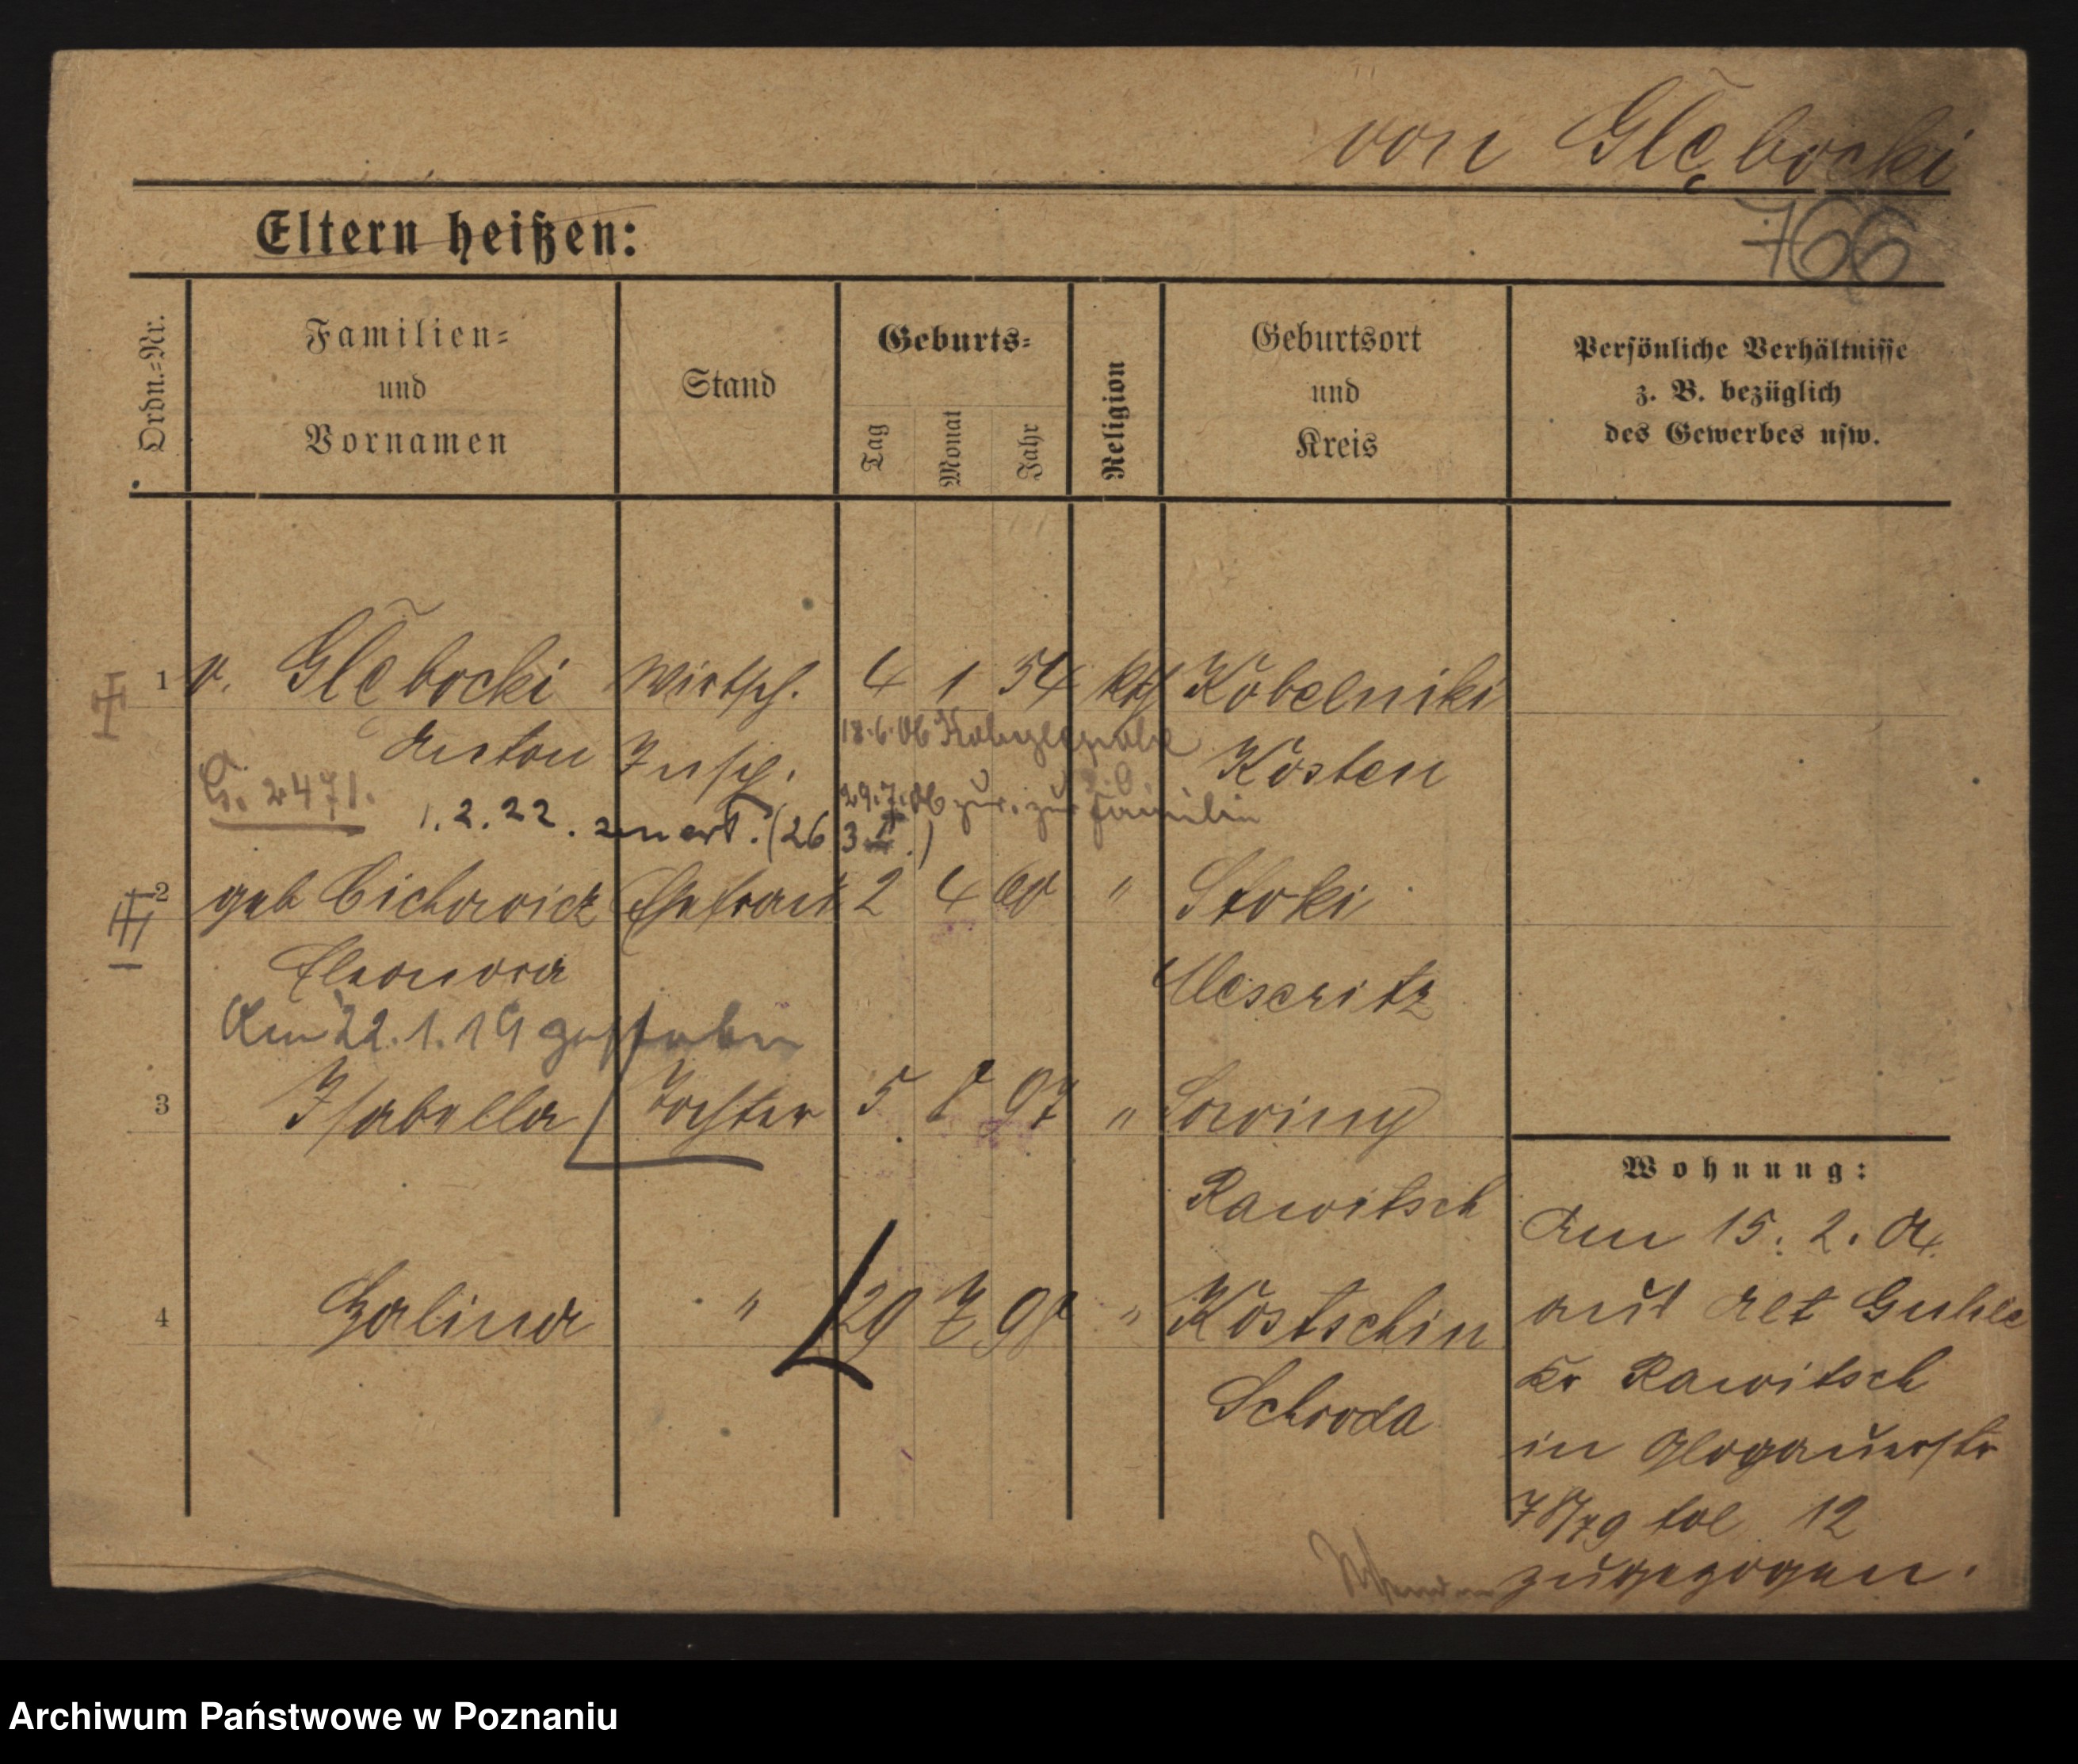 von Głębocki
Eltern heißen:
766
Ordn.-Nr.
Familien-
und
Vornamen
Stand
Geburts-
Tag
Monat
Jahr
Religion
Geburtsort
und
Kreis
Persönliche Verhältnisse
z. B. bezüglich
des Gewerbes usw.
1 v. Głębocki Wirtsch. 4 1 54 kth Kobelniki
Anton Insp. Kosten
18.6.06
G. 2471.
29.7.06 zur. zur Familie
1.2.22. (26 3 .)
2 geb Cichowicz Ehefrau 2 4 60 " Stoki
Eleonora Meseritz
Am 22.1.19 gestorben
3 Isabella Tochter 5 8 97 " Sowiny
Rawitsch
4 Halina " 29 7 98 " Kostschin
Schroda
Wohnung:
Am 15.2.04
aus Alt Guhle
Kr Rawitsch
in Glogauerstr
78/79 bol 12
zugezogen.
Archiwum Państwowe w Poznaniu